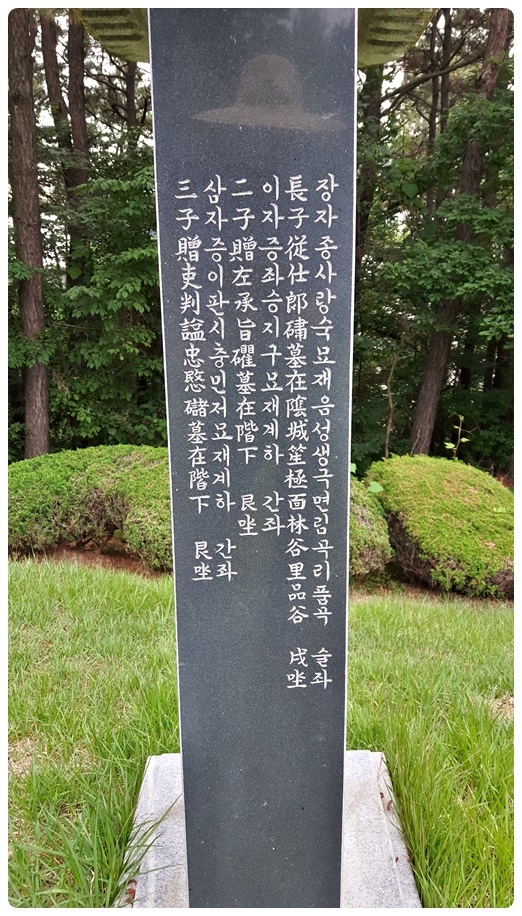 장자 종사랑 숙 묘재 음성 생극면 림곡리 품곡 술좌
長子從仕郞䃤墓在陰城笙極面林谷里品谷 戌坐
이자 증좌승지 구 묘재계하 간좌
二子贈左承旨礭墓在階下 艮坐
삼자 증이판시충민 저 묘재계하 간좌
三子贈吏判諡忠愍䃴墓在階下 艮坐